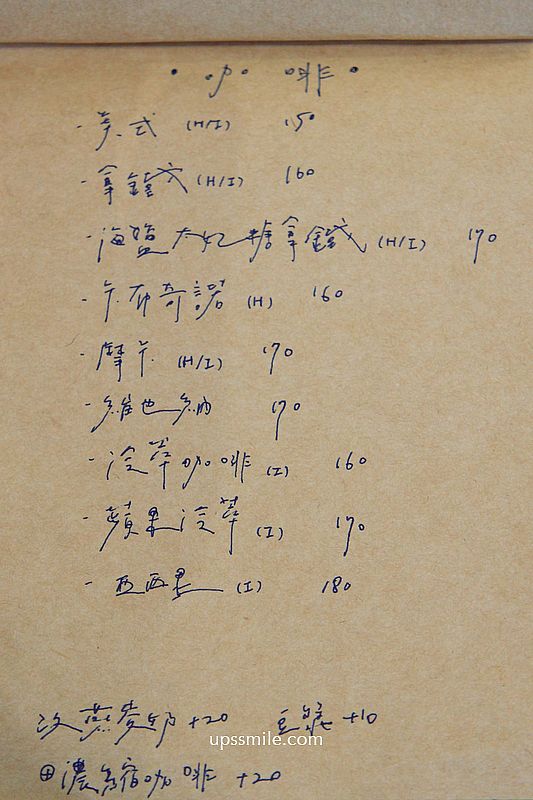 • 咖啡 •
- 美式 (H/I) 150
- 拿鐵 (H/I) 160
- 海鹽太妃糖拿鐵 (H/I) 170
- 卡布奇諾 (H) 160
- 摩卡 (H/I) 170
- 維也納 170
- 冷萃咖啡 (I) 160
- 蘋果冷萃 (I) 170
- 西西里 (I) 180
改燕麥奶 +20 豆漿 +10
upssmile.com
⊕濃縮咖啡 +20